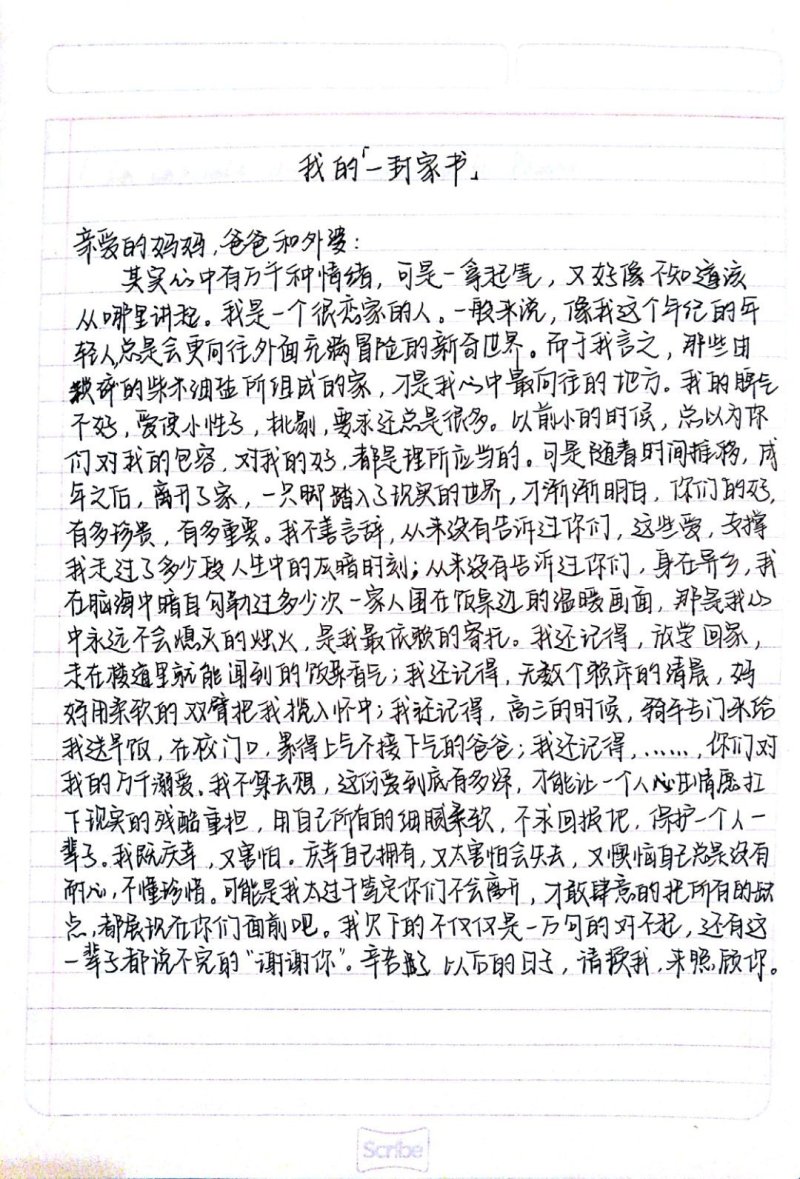 我的「一封家书」
亲爱的妈妈，爸爸和外婆：
其实心中有万千种情绪，可是一拿起笔，又好像不知道该
从哪里讲起。我是一个很恋家的人。一般来说，像我这个年纪的年
轻人，总是会更向往外面充满冒险的新奇世界。而于我言之，那些由
琐碎的柴米油盐所组成的家，才是我心中最向往的地方。我的脾气
不好，爱使小性子，挑剔，要求还总是很多。以前小的时候，总以为你
们对我的包容，对我的好，都是理所应当的。可是随着时间推移，成
年之后，离开了家，一只脚踏入了现实的世界，才渐渐明白，你们的好，
有多珍贵，有多重要。我不善言辞，从来没有告诉过你们，这些爱，支撑
我走过了多少段人生中的灰暗时刻；从来没有告诉过你们，身在异乡，我
在脑海中暗自勾勒过多少次一家人围在饭桌边的温暖画面，那是我心
中永远不会熄灭的烛火，是我最依赖的寄托。我还记得，放学回家，
走在楼道里就能闻到的饭菜香气；我还记得，无数个赖床的清晨，妈
妈用柔软的双臂把我揽入怀中；我还记得，高三的时候，骑车专门来给
我送早饭，在校门口，累得上气不接下气的爸爸；我还记得，……，你们对
我的万千溺爱。我不算去想，这份爱到底有多深，才能让一个人心甘情愿扛
下现实的残酷重担，用自己所有的细腻柔软，不求回报地，保护一个人一
辈子。我既庆幸，又害怕。庆幸自己拥有，又太害怕会失去，又懊恼自己总是没有
耐心，不懂珍惜。可能是我太过于笃定你们不会离开，才敢肆意的把所有的缺
点，都展现在你们面前吧。我欠下的不仅仅是一万句的对不起，还有这
一辈子都说不完的“谢谢你”。辛苦了 以后的日子，请换我，来照顾你。
Scribe